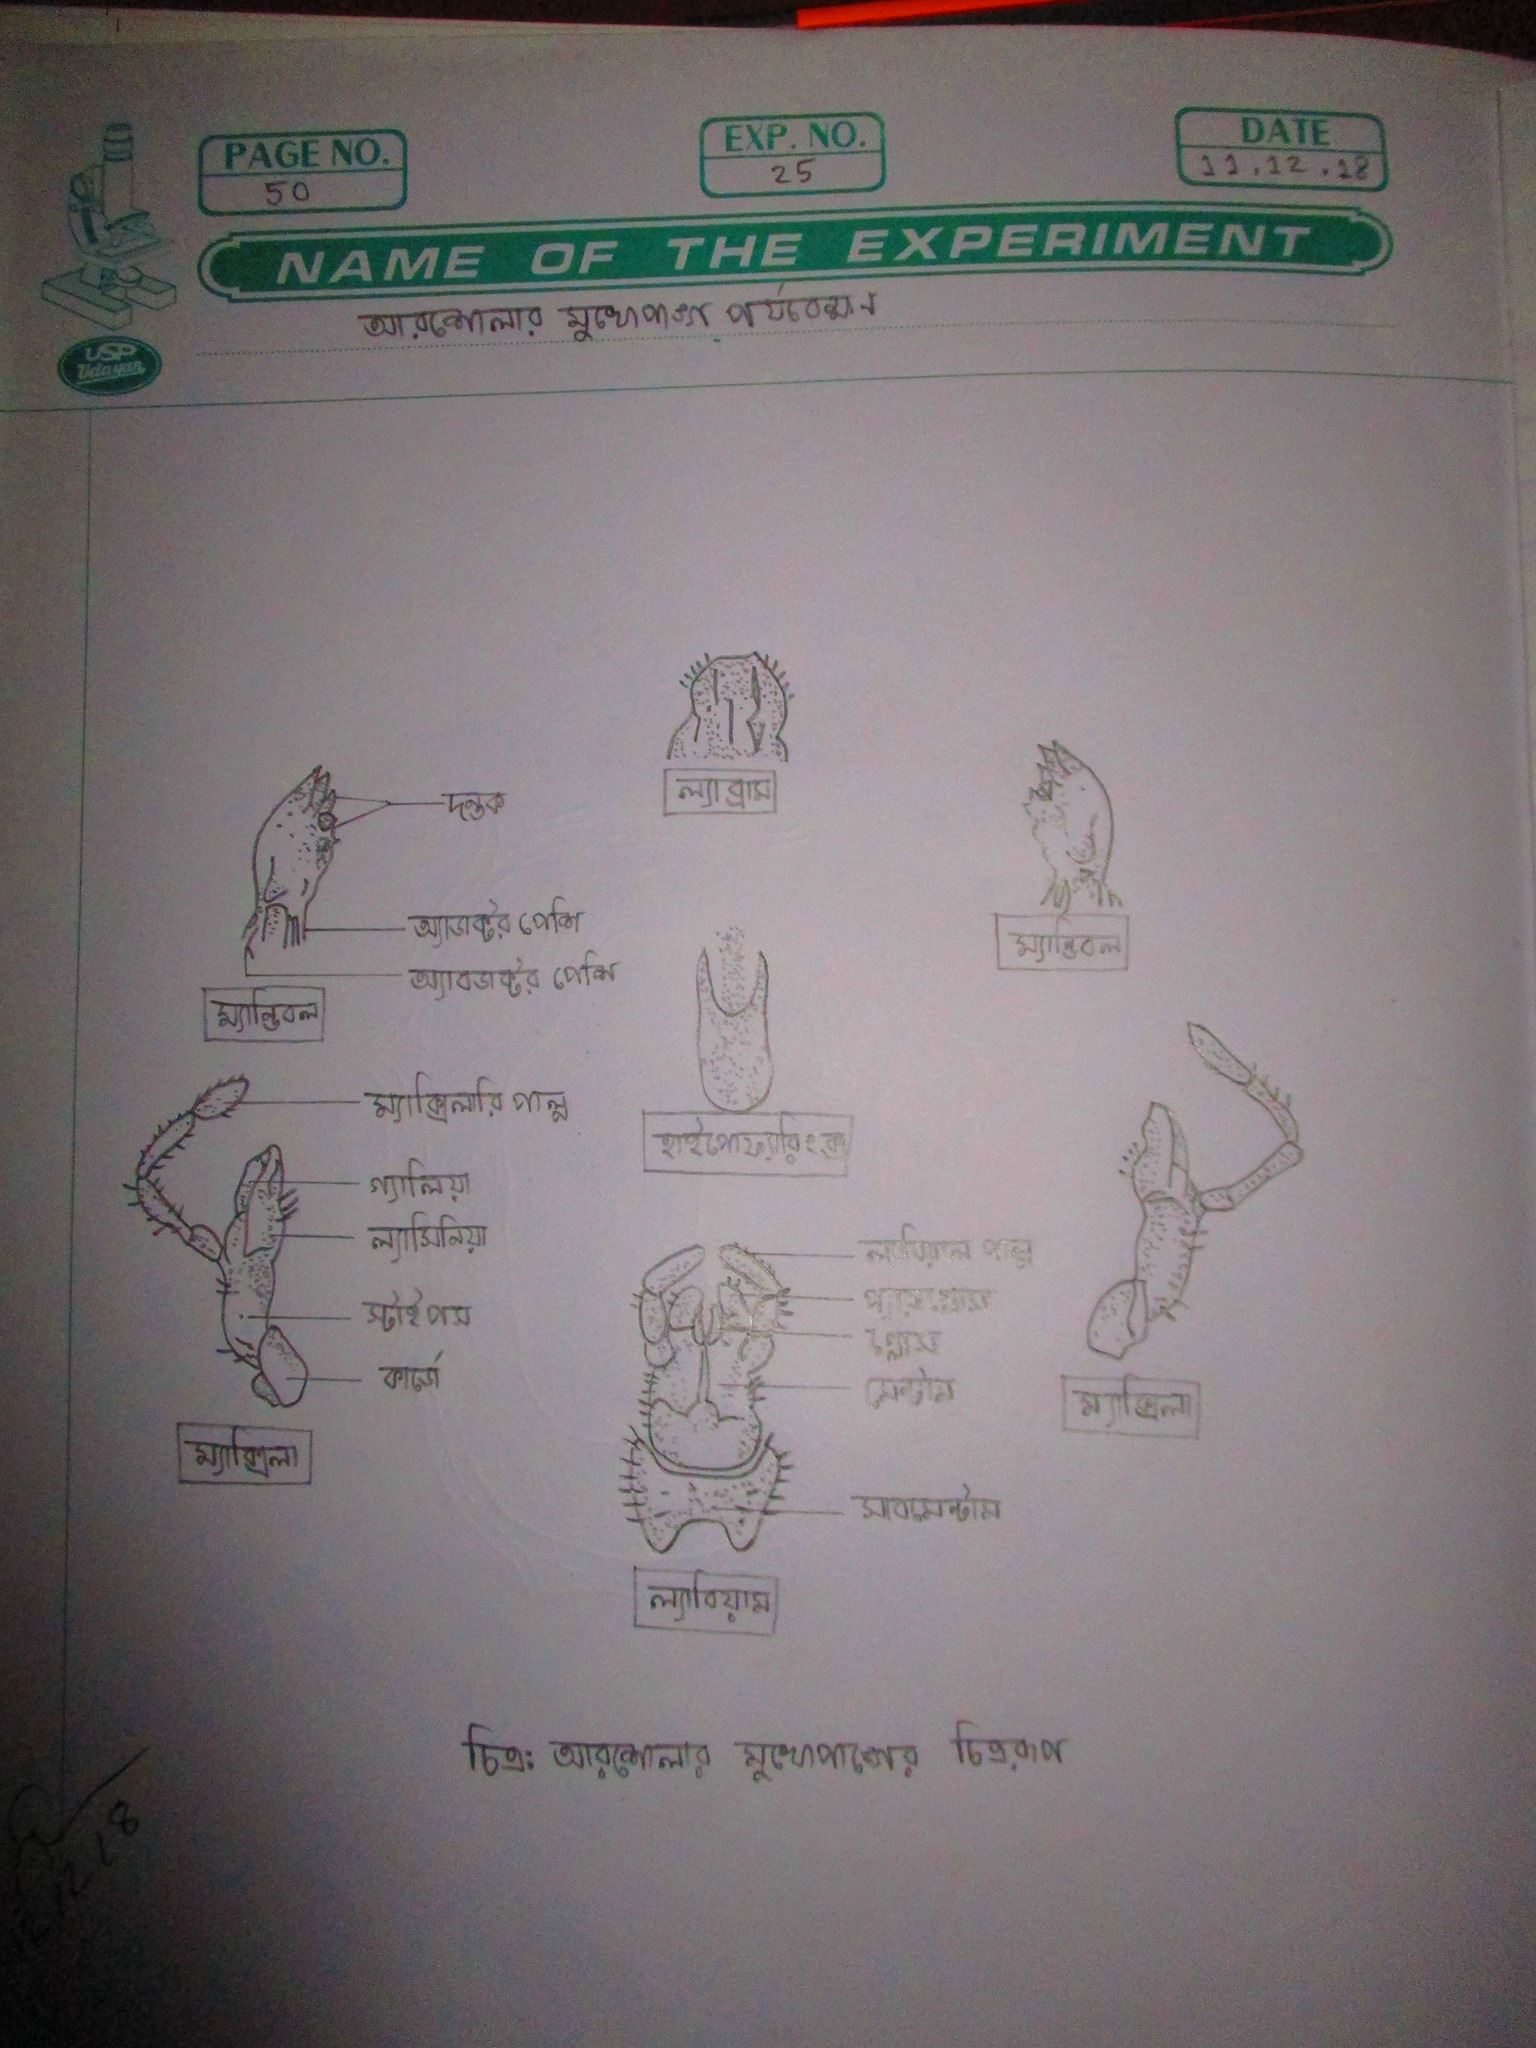 PAGE NO.
50
EXP. NO.
25
DATE
11.12.18
NAME OF THE EXPERIMENT
আরশোলার মুখোপাঙ্গ পর্যবেক্ষণ
USP
Udayan
ল্যাব্রাম
দন্তক
অ্যাডাক্টর পেশি
অ্যাবডাক্টর পেশি
ম্যান্ডিবল
ম্যান্ডিবল
হাইপোফ্যারিংক্স
ম্যাক্সিলারি পাল্প
গ্যালিয়া
ল্যাসিনিয়া
স্টাইপস
কার্ডো
ম্যাক্সিলা
ল্যাবিয়াল পাল্প
প্যারাগ্লোসা
গ্লোসা
মেন্টাম
সাবমেন্টাম
ল্যাবিয়াম
ম্যাক্সিলা
চিত্র: আরশোলার মুখোপাঙ্গের চিত্ররূপ
12.18